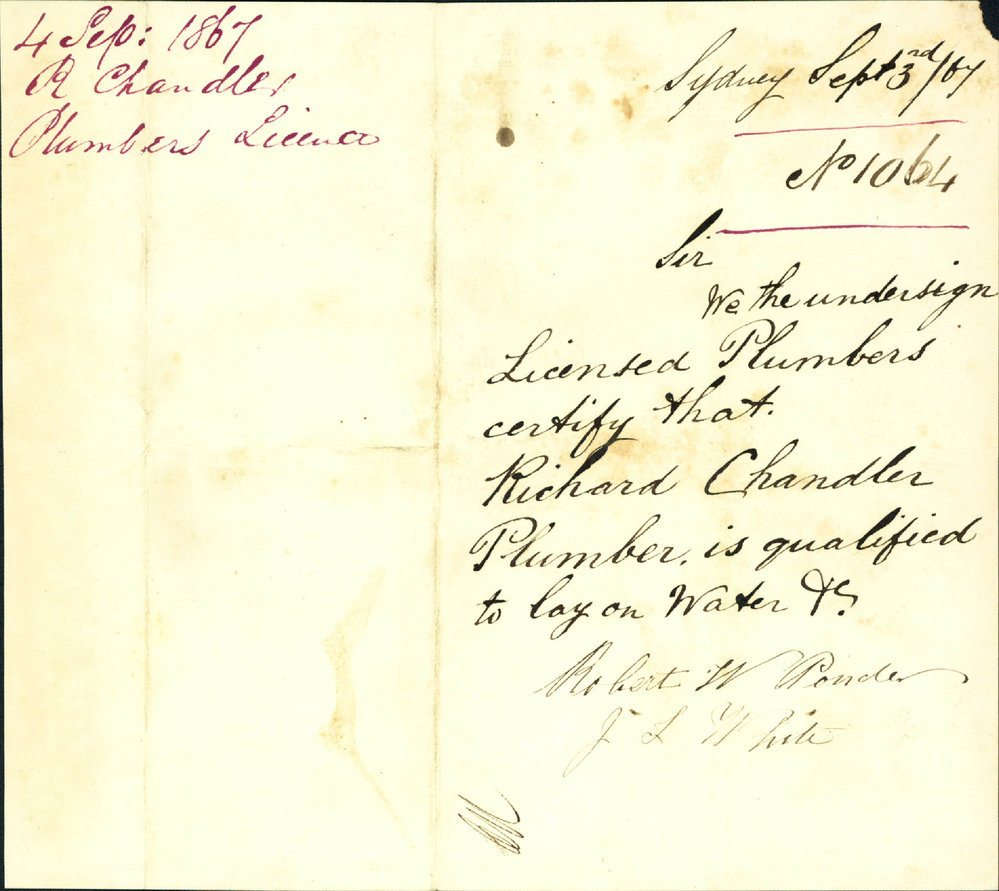 4 Sep: 1867
R Chandler
Plumbers Licence
Sydney Sept 3rd/67
No 1064
Sir
We the undersign
Licensed Plumbers
certify that.
Richard Chandler
Plumber. is qualified
to lay on Water &c
Robert W Ponder
J L White